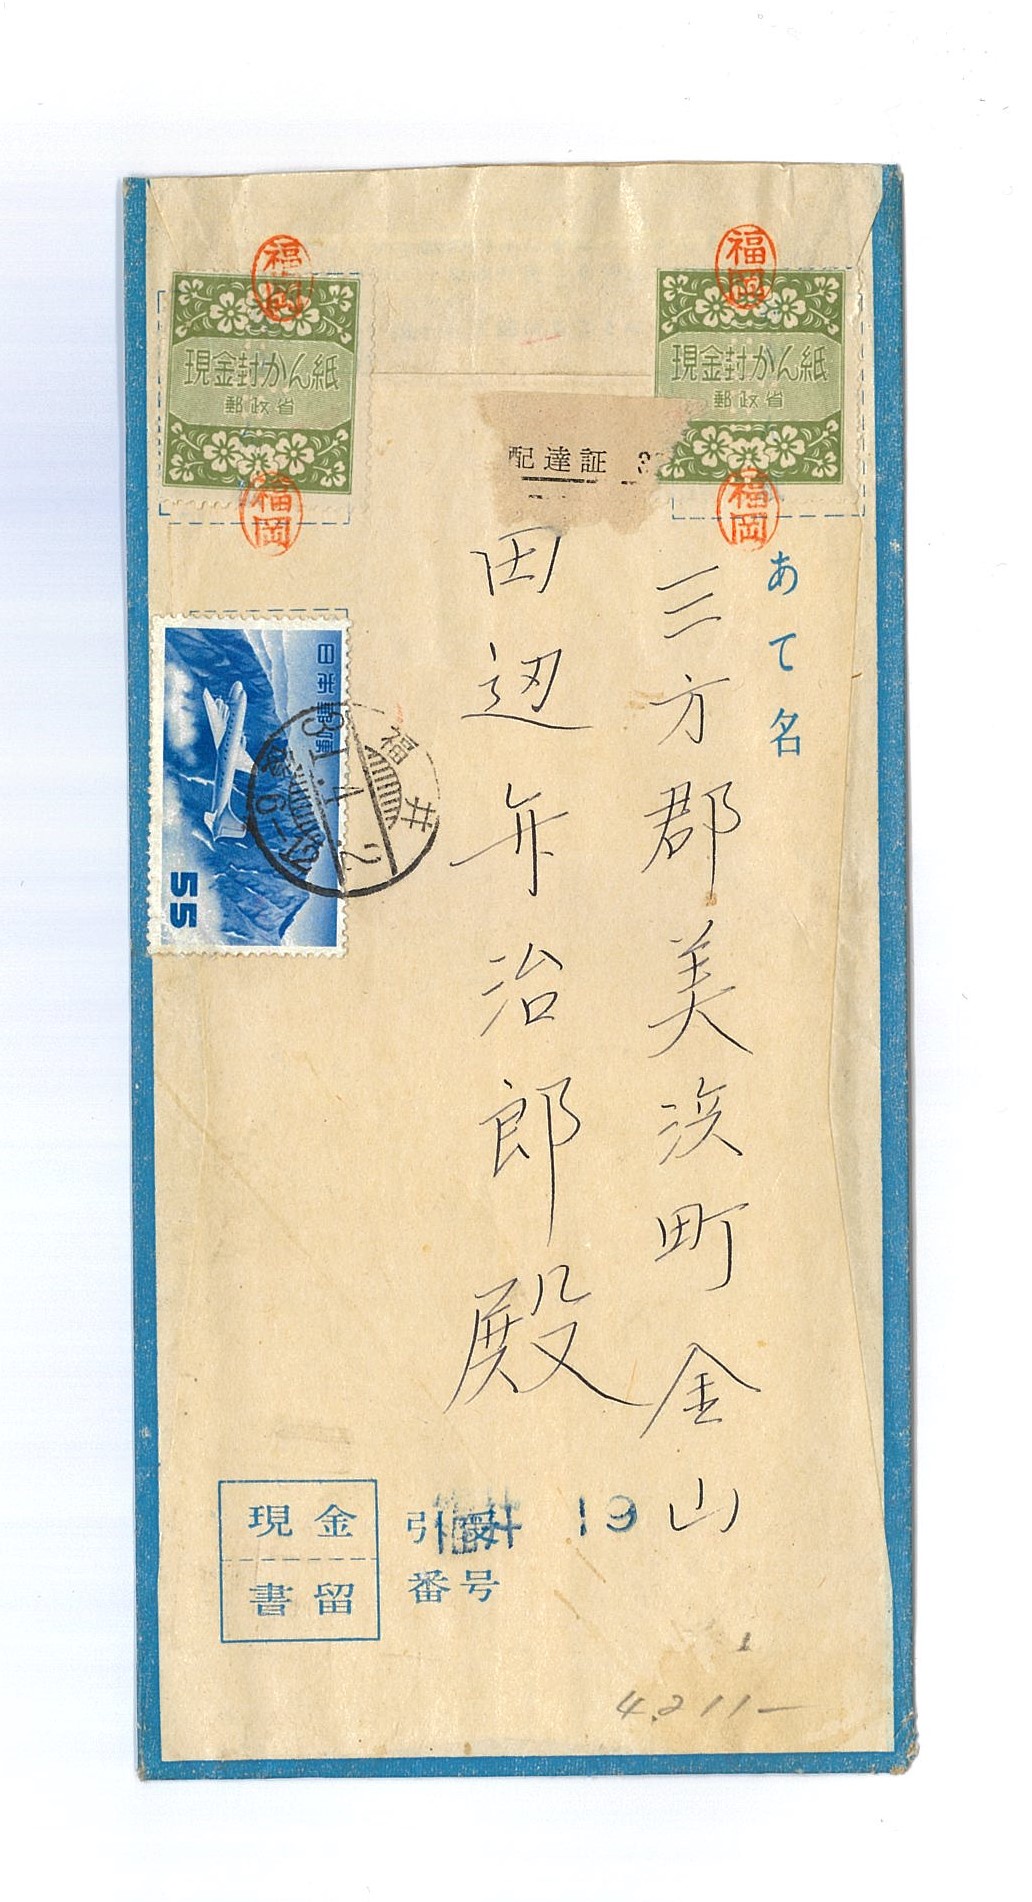 福岡
福岡
現金封かん紙
郵政省
現金封かん紙
郵政省
福岡
福岡
配達証
あて名
三方郡美浜町金山
田辺弁治郎殿
日本郵便
55
福井
31.4.2
現金
書留
引
番号
19
4,211—